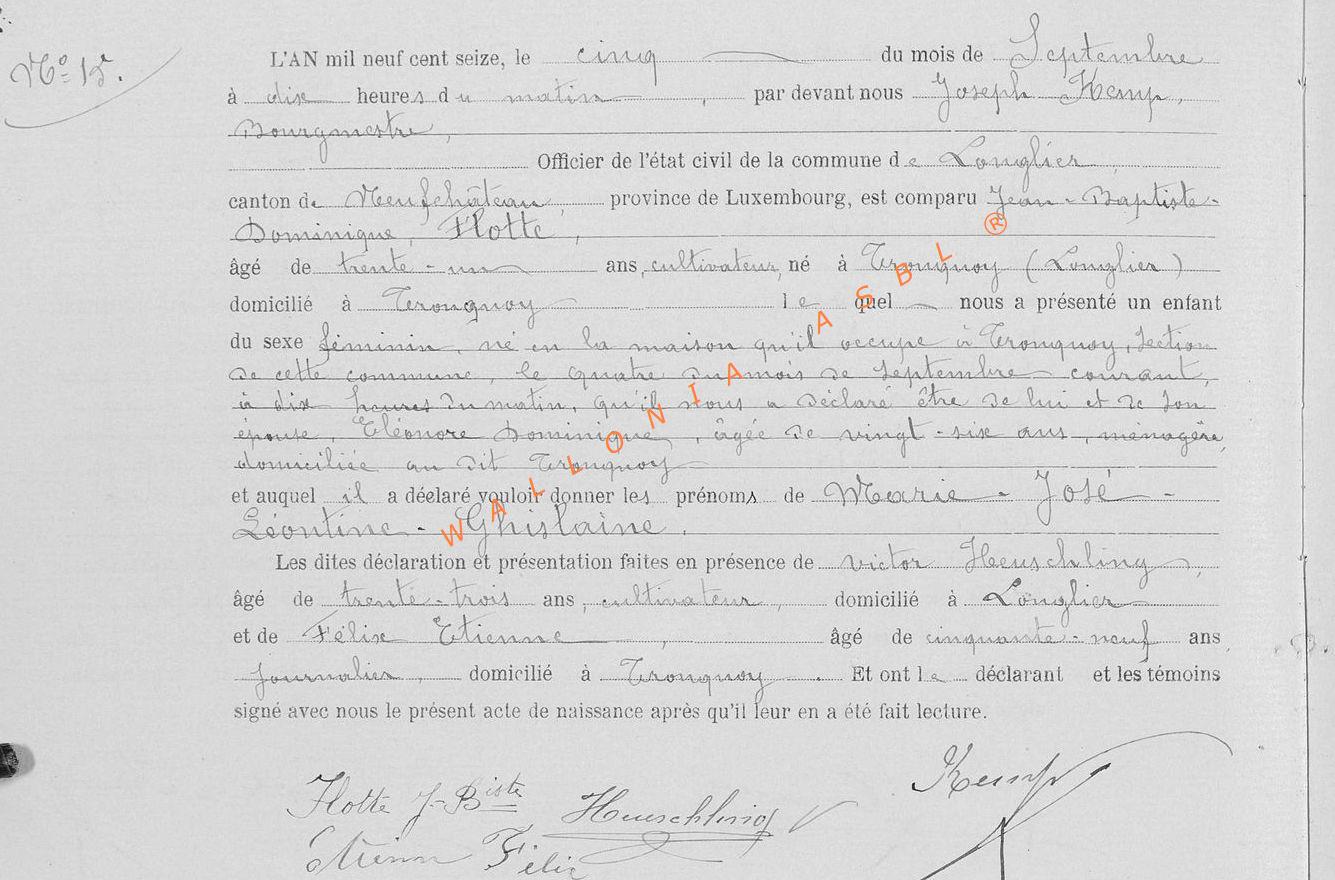 No 15.
L'AN mil neuf cent seize, le cinq du mois de Septembre
à dix heures du matin, par devant nous Joseph Kemp,
Bourgmestre,
Officier de l'état civil de la commune de Longlier,
canton de Neufchâteau, province de Luxembourg, est comparu Jean-Baptiste-
Dominique, Flotte,
âgé de trente-un ans, cultivateur, né à Tronquoy (Longlier)
domicilié à Tronquoy lequel nous a présenté un enfant
du sexe féminin, né en la maison qu'il occupe à Tronquoy, section
de cette commune, le quatre du mois de septembre courant,
à dix heures du matin, qu'il nous a déclaré être de lui et de son
épouse, Eléonore Dominique, âgée de vingt-six ans, ménagère,
domiciliée au dit Tronquoy
et auquel il a déclaré vouloir donner les prénoms de Marie-José-
Léontine-Ghislaine.
Les dites déclaration et présentation faites en présence de Victor Heuschling,
âgé de trente-trois ans, cultivateur, domicilié à Longlier
et de Félix Etienne, âgé de cinquante-neuf ans
journalier, domicilié à Tronquoy. Et ont le déclarant et les témoins
signé avec nous le présent acte de naissance après qu'il leur en a été fait lecture.
Flotte J-Biste Heuschling Kemp
Etienn Félix
WALLONIA ASBL ®